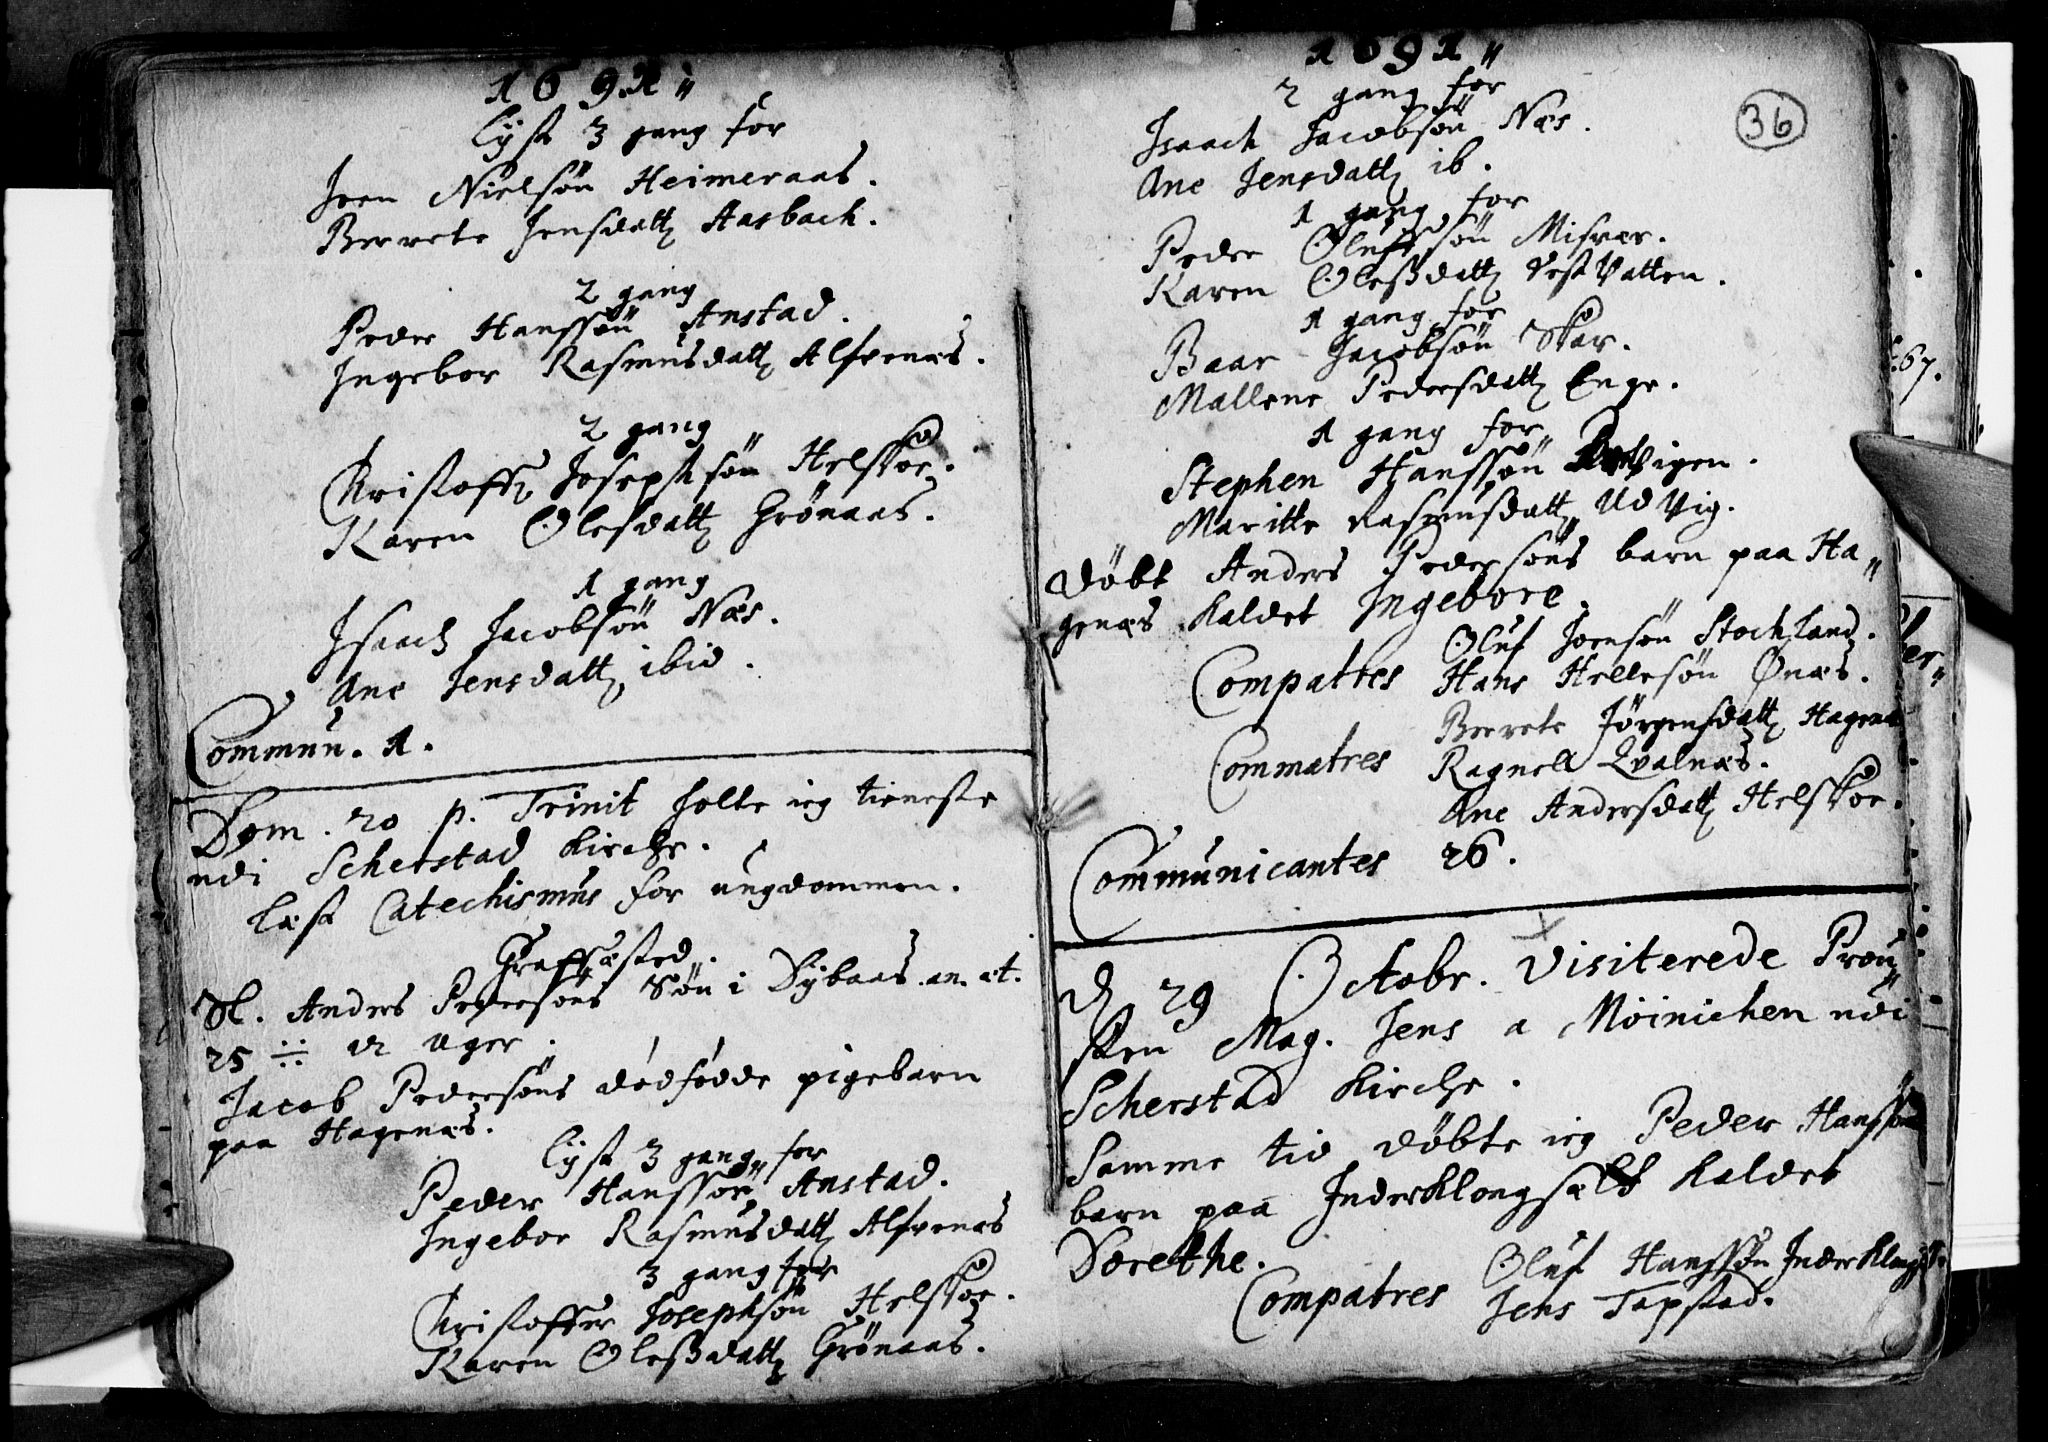 1691"
Lyst 3 gang for
Joen Nielsön Heimeraas.
Berrete Jensdatt Aasbach.
2 gang
Peder Hanssön Anstad.
Ingebor Rasmusdatt Alfvenæs.
2 gang
Kristoff Josephsön Helskoe.
Karen Olesdatt Grönaas.
1 gang
Isaach Jacobsön Næs.
Ane Jensdatt ibid.
Commun. 1.
Dom. 20 p. Trinit holte ieg tieneste
udi Scherstad Kirche.
Læst Catechismus for ungdommen.
Grafsæsted.
Sl. Anders Pedersöns Sön i Dybaas. an. æt.
25 ÷ 12 uger.
Jacob Pedersöns dödfödde pigebarn
paa Hagenæs.
Lyst 3 gang for
Peder Hanssön Anstad.
Ingebor Rasmusdatt Alfvenæs
3 gang for
Kristoffer Josephsön Helskoe.
Karen Oleßdatt Grönaas.
1691"
36
2 gang for
Isaach Jacobsön Næs.
Ane Jensdatt ib.
1 gang for
Peder Oluffsön Misvær.
Karen Oleßdatt Vest Vatten.
1 gang for
Baar Jacobsön Skar.
Mallene Pedersdatt Enge.
1 gang for
Stephen Hanssön
Maritte Rasmusdatt Ud Vig.
Döbt Anders Pedersöns barn paa Ha"
genæs kaldet Ingebore.
Oluf Joensön Stochland.
Compatres Hans Hellesön Ønæs.
Berrete Jörgensdatt Hagenæ
Commatres Ragnell Qvalnæs.
Ane Andersdatt Helskoe.
Communicantes 26.
D 29 Octobr. Visiterede Prou"
sten Mag. Jens a Möinichen udi
Scherstad Kirche.
Samme tid döbte ieg Peder Hanssöns
barn paa Inderklongsæt kaldet
Dorethe.
Oluf Hanssön Inderklongs
Compatres Jens Tapstad.